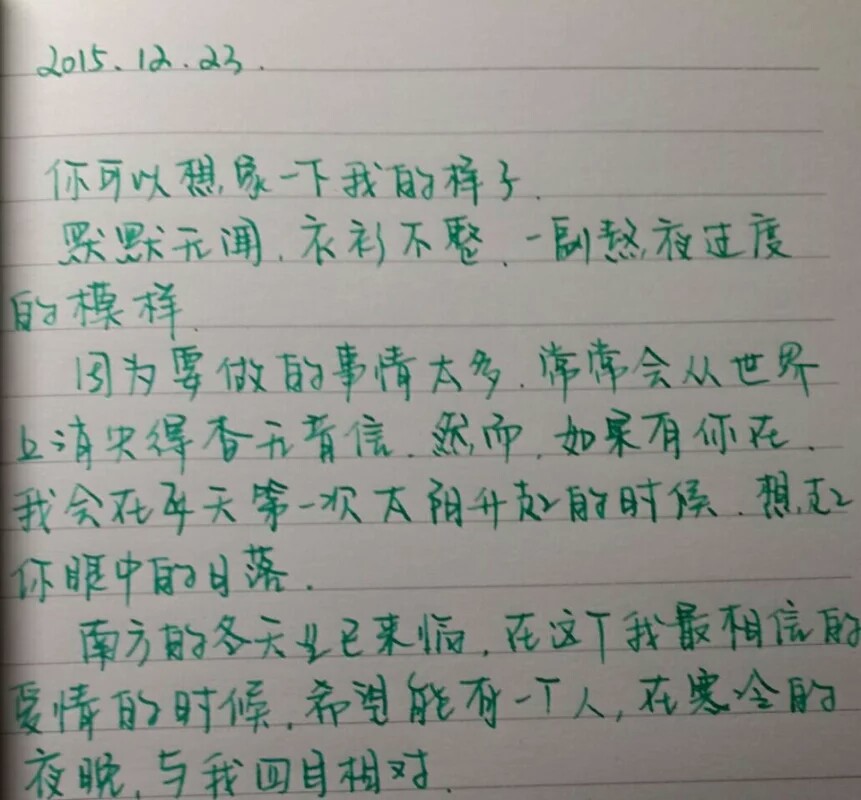 2015.12.23.
你可以想象一下我的样子.
默默无闻.衣衫不整.一副熬夜过度
的模样.
因为要做的事情太多.常常会从世界
上消失得杳无音信.然而.如果有你在.
我会在每天第一次太阳升起的时候.想起
你眼中的日落.
南方的冬天业已来临,在这个我最相信的
爱情的时候,希望能有一个人,在寒冷的
夜晚,与我四目相对.